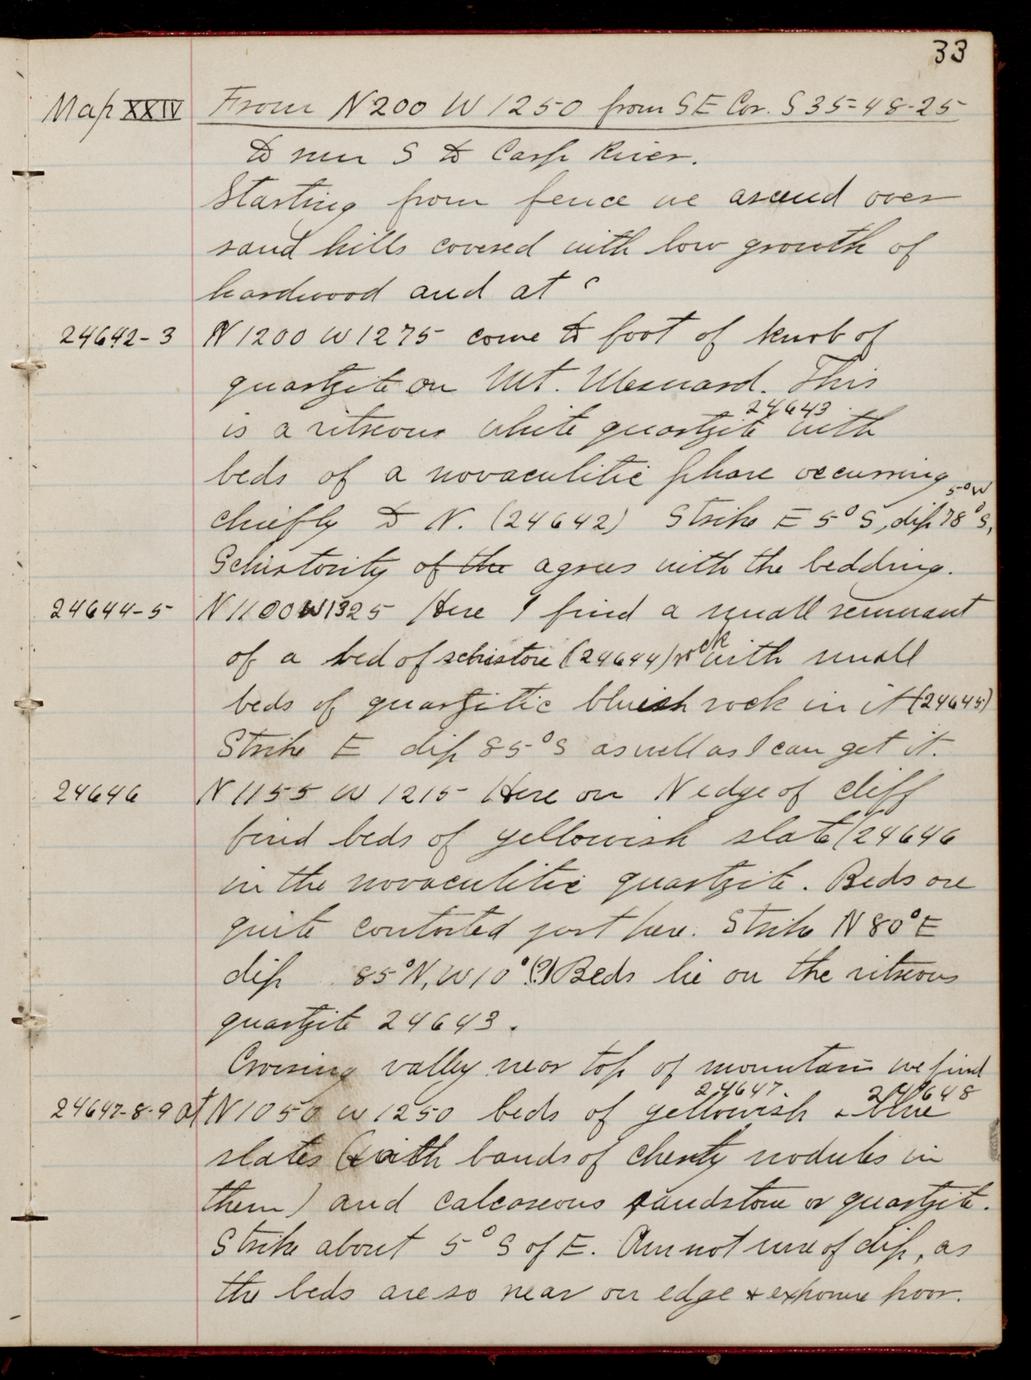 33
Map XXIV From N200 W1250 from SE Cor. S35-48-25
to run S to Carp River.
Starting from fence we ascend over
sand hills covered with low growth of
hardwood and at
24642-3 N1200 W1275 come to foot of knob of
quartzite on Mt. Mesnard. This
is a vitreous white quartzite 24643 with
beds of a novaculitic phase occurring
chiefly to N. (24642) Strike E 5° S, dip 78° S, 5° W
Schistosity of the agrees with the bedding.
24644-5 N1100 W1325 Here I find a small remnant
of a bed of schistose (24644) rock with small
beds of quartzitic bluish rock in it (24645)
Strike E dip 85° S as well as I can get it.
24646 N1155 W1215 Here on N edge of cliff
find beds of yellowish slate (24646
in the novaculitic quartzite. Beds are
quite contorted just here. Strike N80°E
dip 85°N, W10° (?) Beds lie on the vitreous
quartzite 24643.
Crossing valley near top of mountain we find
24647-8-9 at N1050 W1250 beds of yellowish 24647 & blue 24648
slates (with bands of cherty nodules in
them) and calcareous sandstone or quartzite.
Strike about 5° S of E. Am not sure of dip, as
the beds are so near on edge & exposure poor.